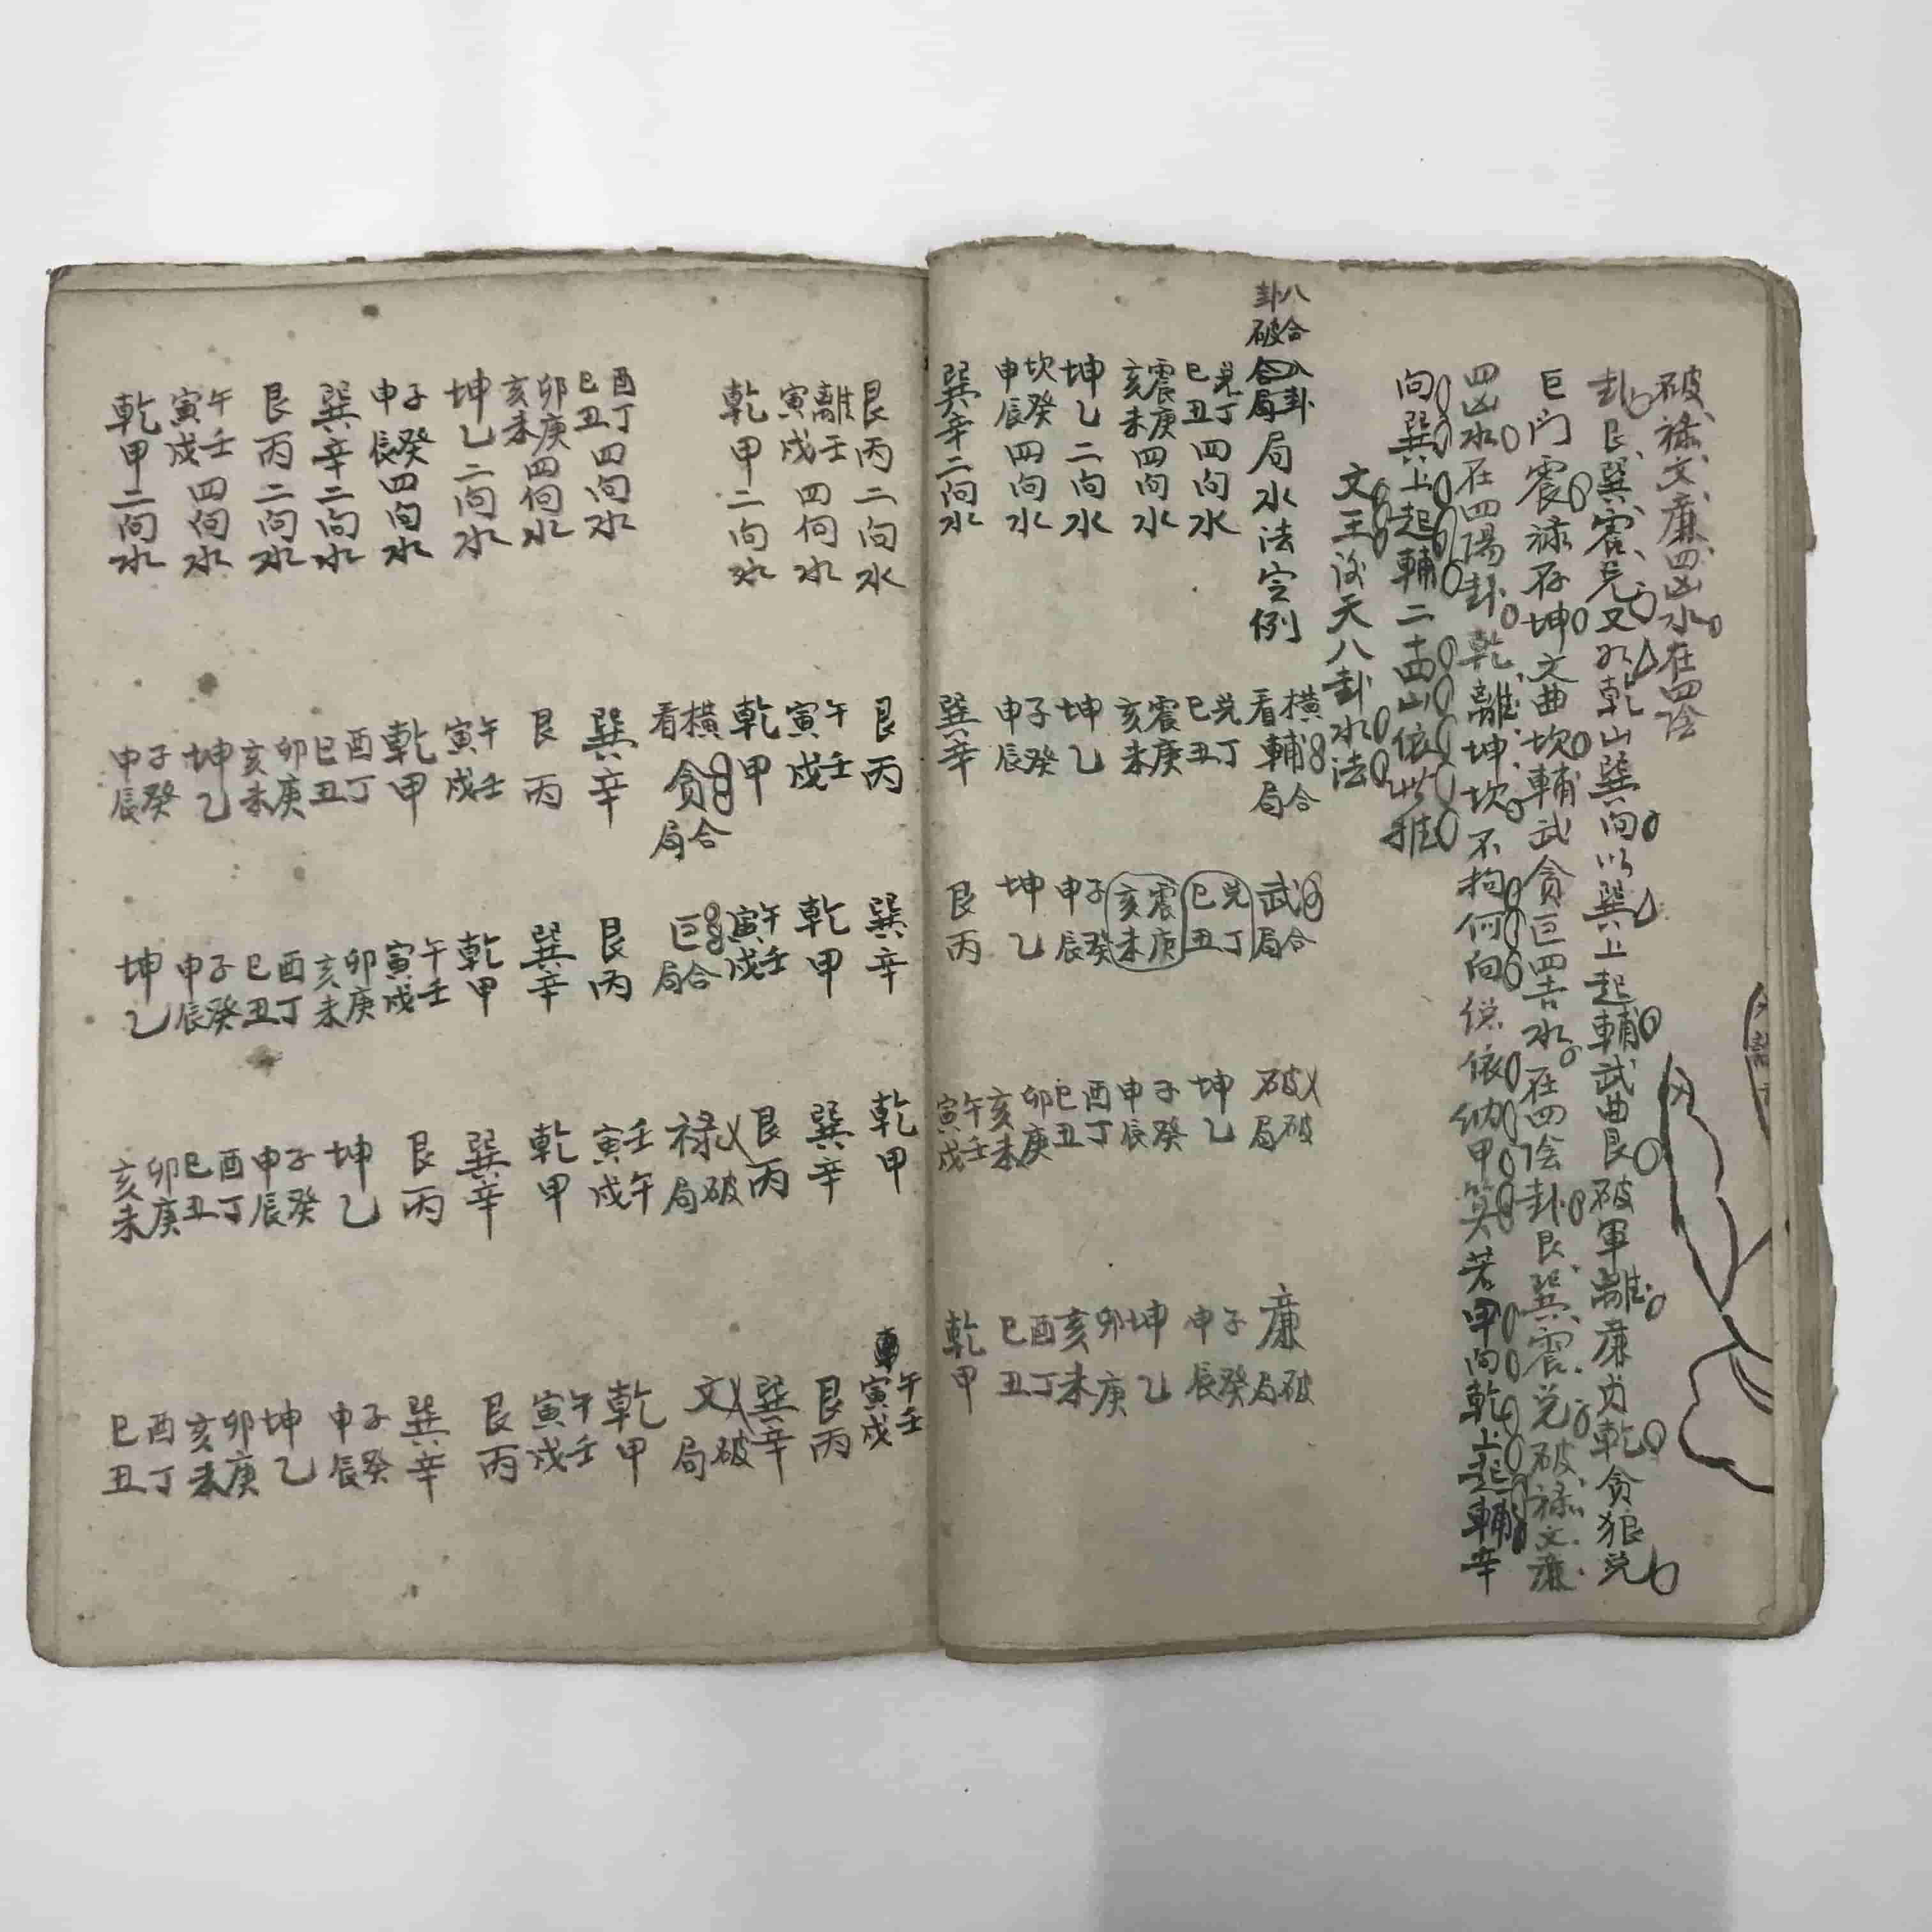 破禄文廉四凶水在四陰
卦艮巽震兑又如乾山巽向以巽上起輔武曲艮破軍離廉貞乾貪狼兑
巨门震禄存坤文曲坎輔武貪巨四吉水在四陰卦艮巽震兑破禄文廉
四凶水在四陽卦乾離坤坎不拘何向従依纳甲算若甲向乾上起輔辛
向巽上起輔二十四山依此推
文王後天八卦水法
八卦合破
八卦合局局水法定例
横看輔合局
武合局
破破局
廉破局
兑丁巳丑四向水
兑丁巳丑
兑丁巳丑
坤乙
申子辰癸
震庚亥未四向水
震庚亥未
震庚亥未
申子辰癸
坤乙
坤乙二向水
坤乙
申子辰癸
酉丁巳丑
卯庚亥未
坎癸申辰四向水
申子辰癸
坤乙
卯庚亥未
酉丁巳丑
巽辛二向水
巽辛
艮丙
午壬寅戌
乾甲
艮丙二向水
艮丙
巽辛
乾甲
午壬寅戌
離壬寅戌四向水
午壬寅戌
乾甲
巽辛
艮丙
乾甲二向水
乾甲
午壬寅戌
艮丙
巽辛
横看貪合局
巨合局
禄破局
文破局
酉丁巳丑四向水
巽辛
艮丙
壬午寅戌
乾甲
卯庚亥未四向水
艮丙
巽辛
乾甲
午壬寅戌
坤乙二向水
午壬寅戌
乾甲
巽辛
艮丙
子癸申辰四向水
乾甲
午壬寅戌
艮丙
巽辛
巽辛二向水
酉丁巳丑
卯庚亥未
坤乙
子癸申辰
艮丙二向水
卯庚亥未
酉丁巳丑
子癸申辰
坤乙
午壬寅戌四向水
坤乙
子癸申辰
酉丁巳丑
卯庚亥未
乾甲二向水
子癸申辰
坤乙
卯庚亥未
酉丁巳丑